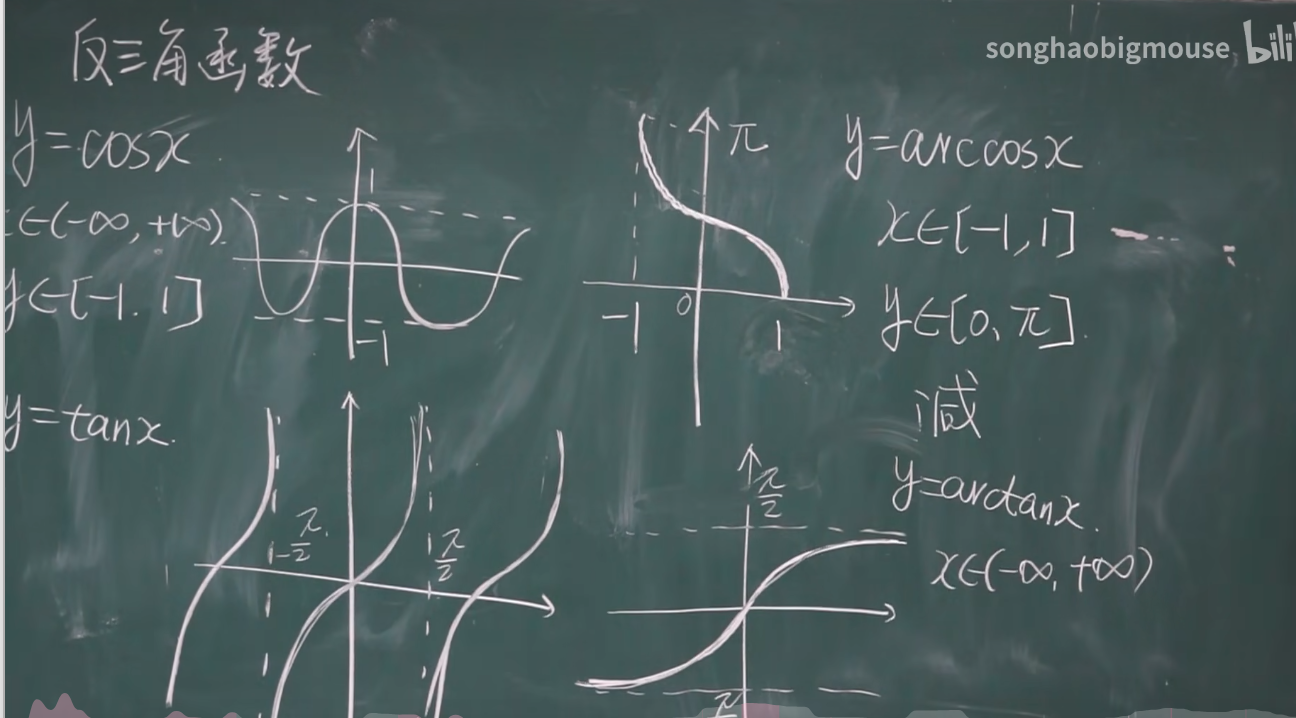 反三角函数
songhaobigmouse bili
y=cosx
x∈(-∞,+∞).
y∈[-1.1]
1
-1
π
-1
0
1
y=arccosx
x∈[-1,1]
y∈[0,π].
减
y=tanx.
-π/2
π/2
π/2
y=arctanx.
x∈(-∞,+∞)